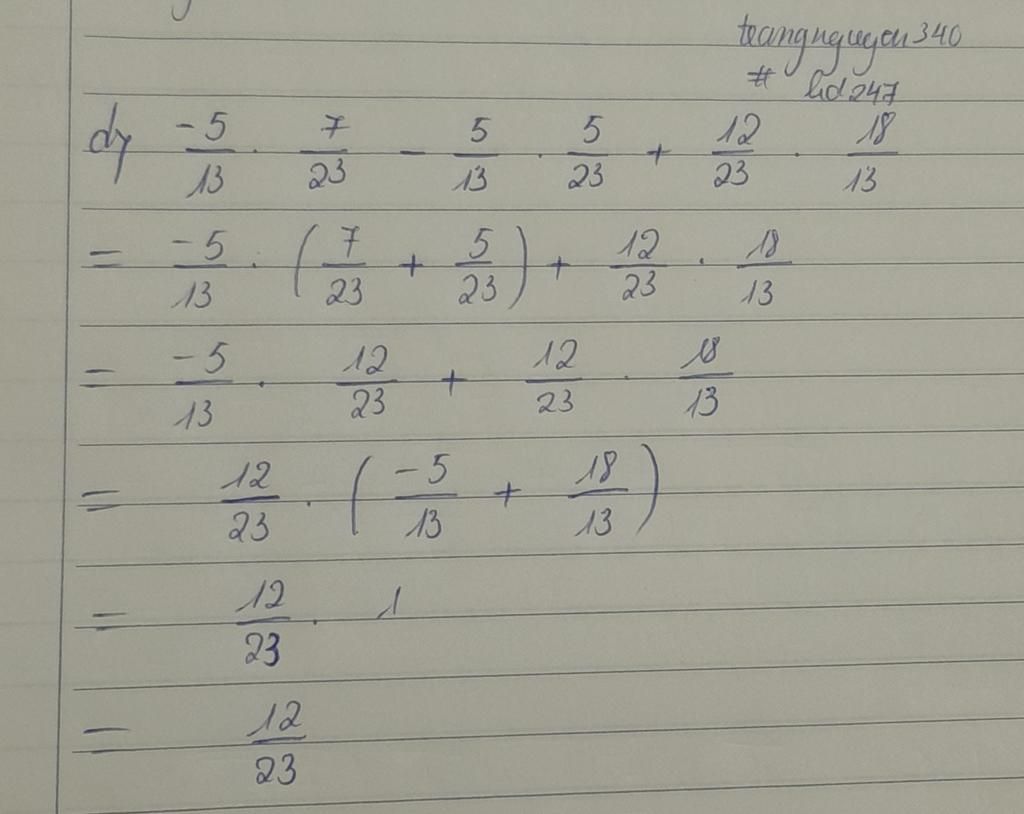 trangnguyen340
# hd247
d) -5/13 . 7/23 - 5/13 . 5/23 + 12/23 . 18/13
= -5/13 . (7/23 + 5/23) + 12/23 . 18/13
= -5/13 . 12/23 + 12/23 . 18/13
= 12/23 . (-5/13 + 18/13)
= 12/23 . 1
= 12/23